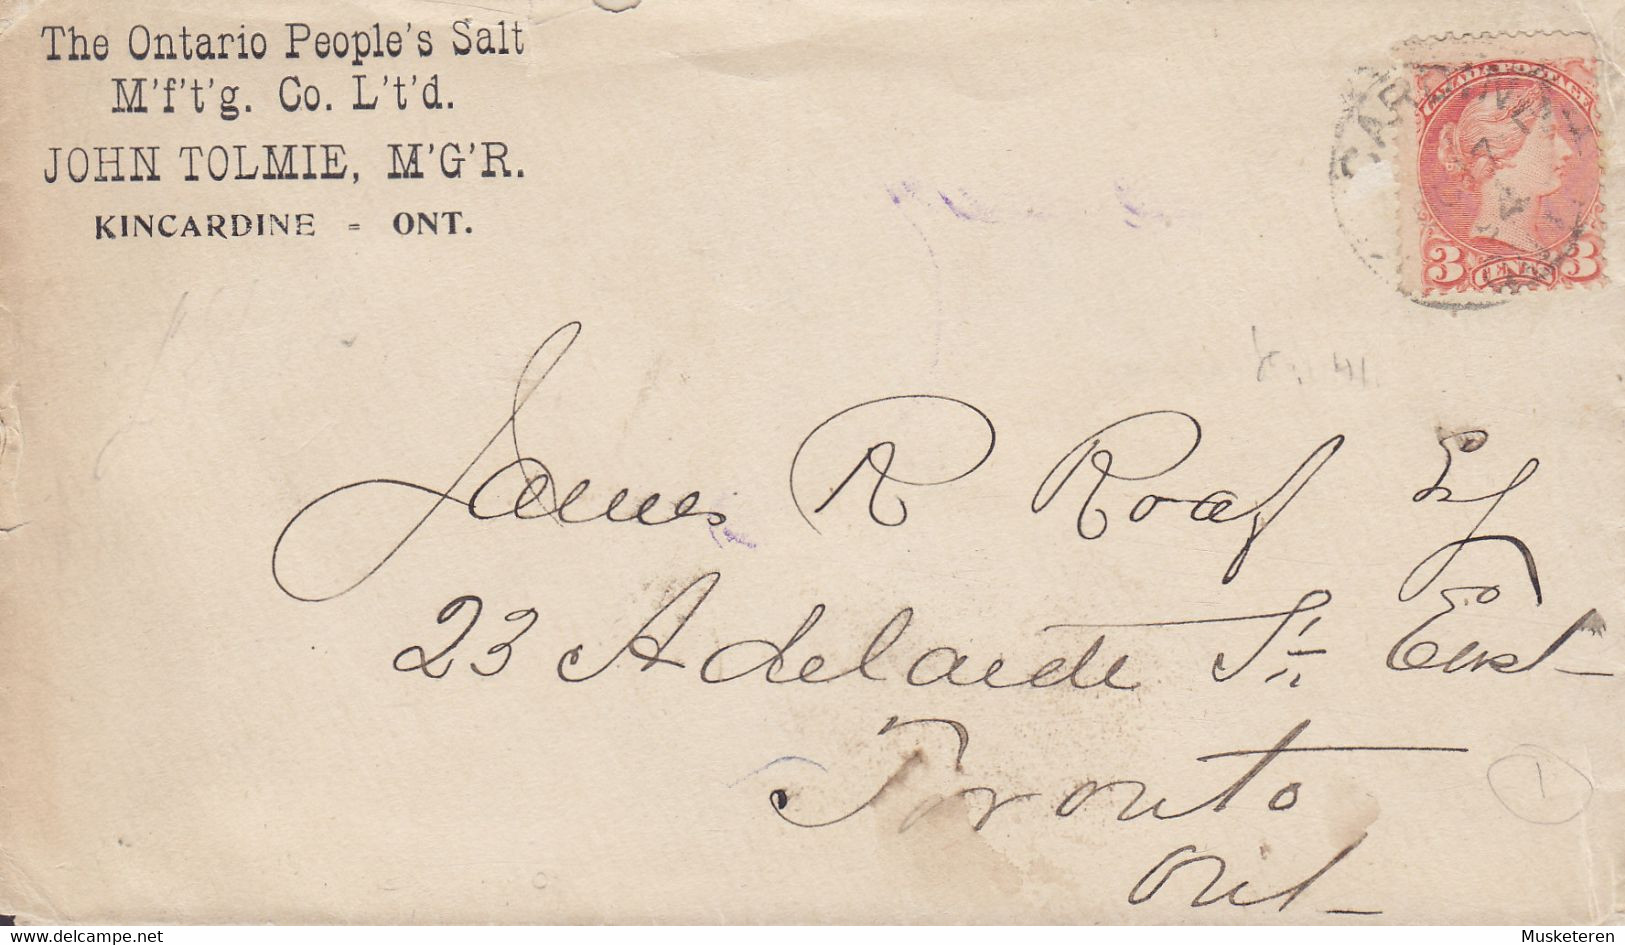 The Ontario People's Salt
M'f't'g. Co. L't'd.
JOHN TOLMIE, M'G'R.
KINCARDINE - ONT.
CANADA POSTAGE
3 CENTS 3
James R Roaf Esq
23 Adelaide St. East
Toronto
Ont
1
delcampe.net
Musketeren